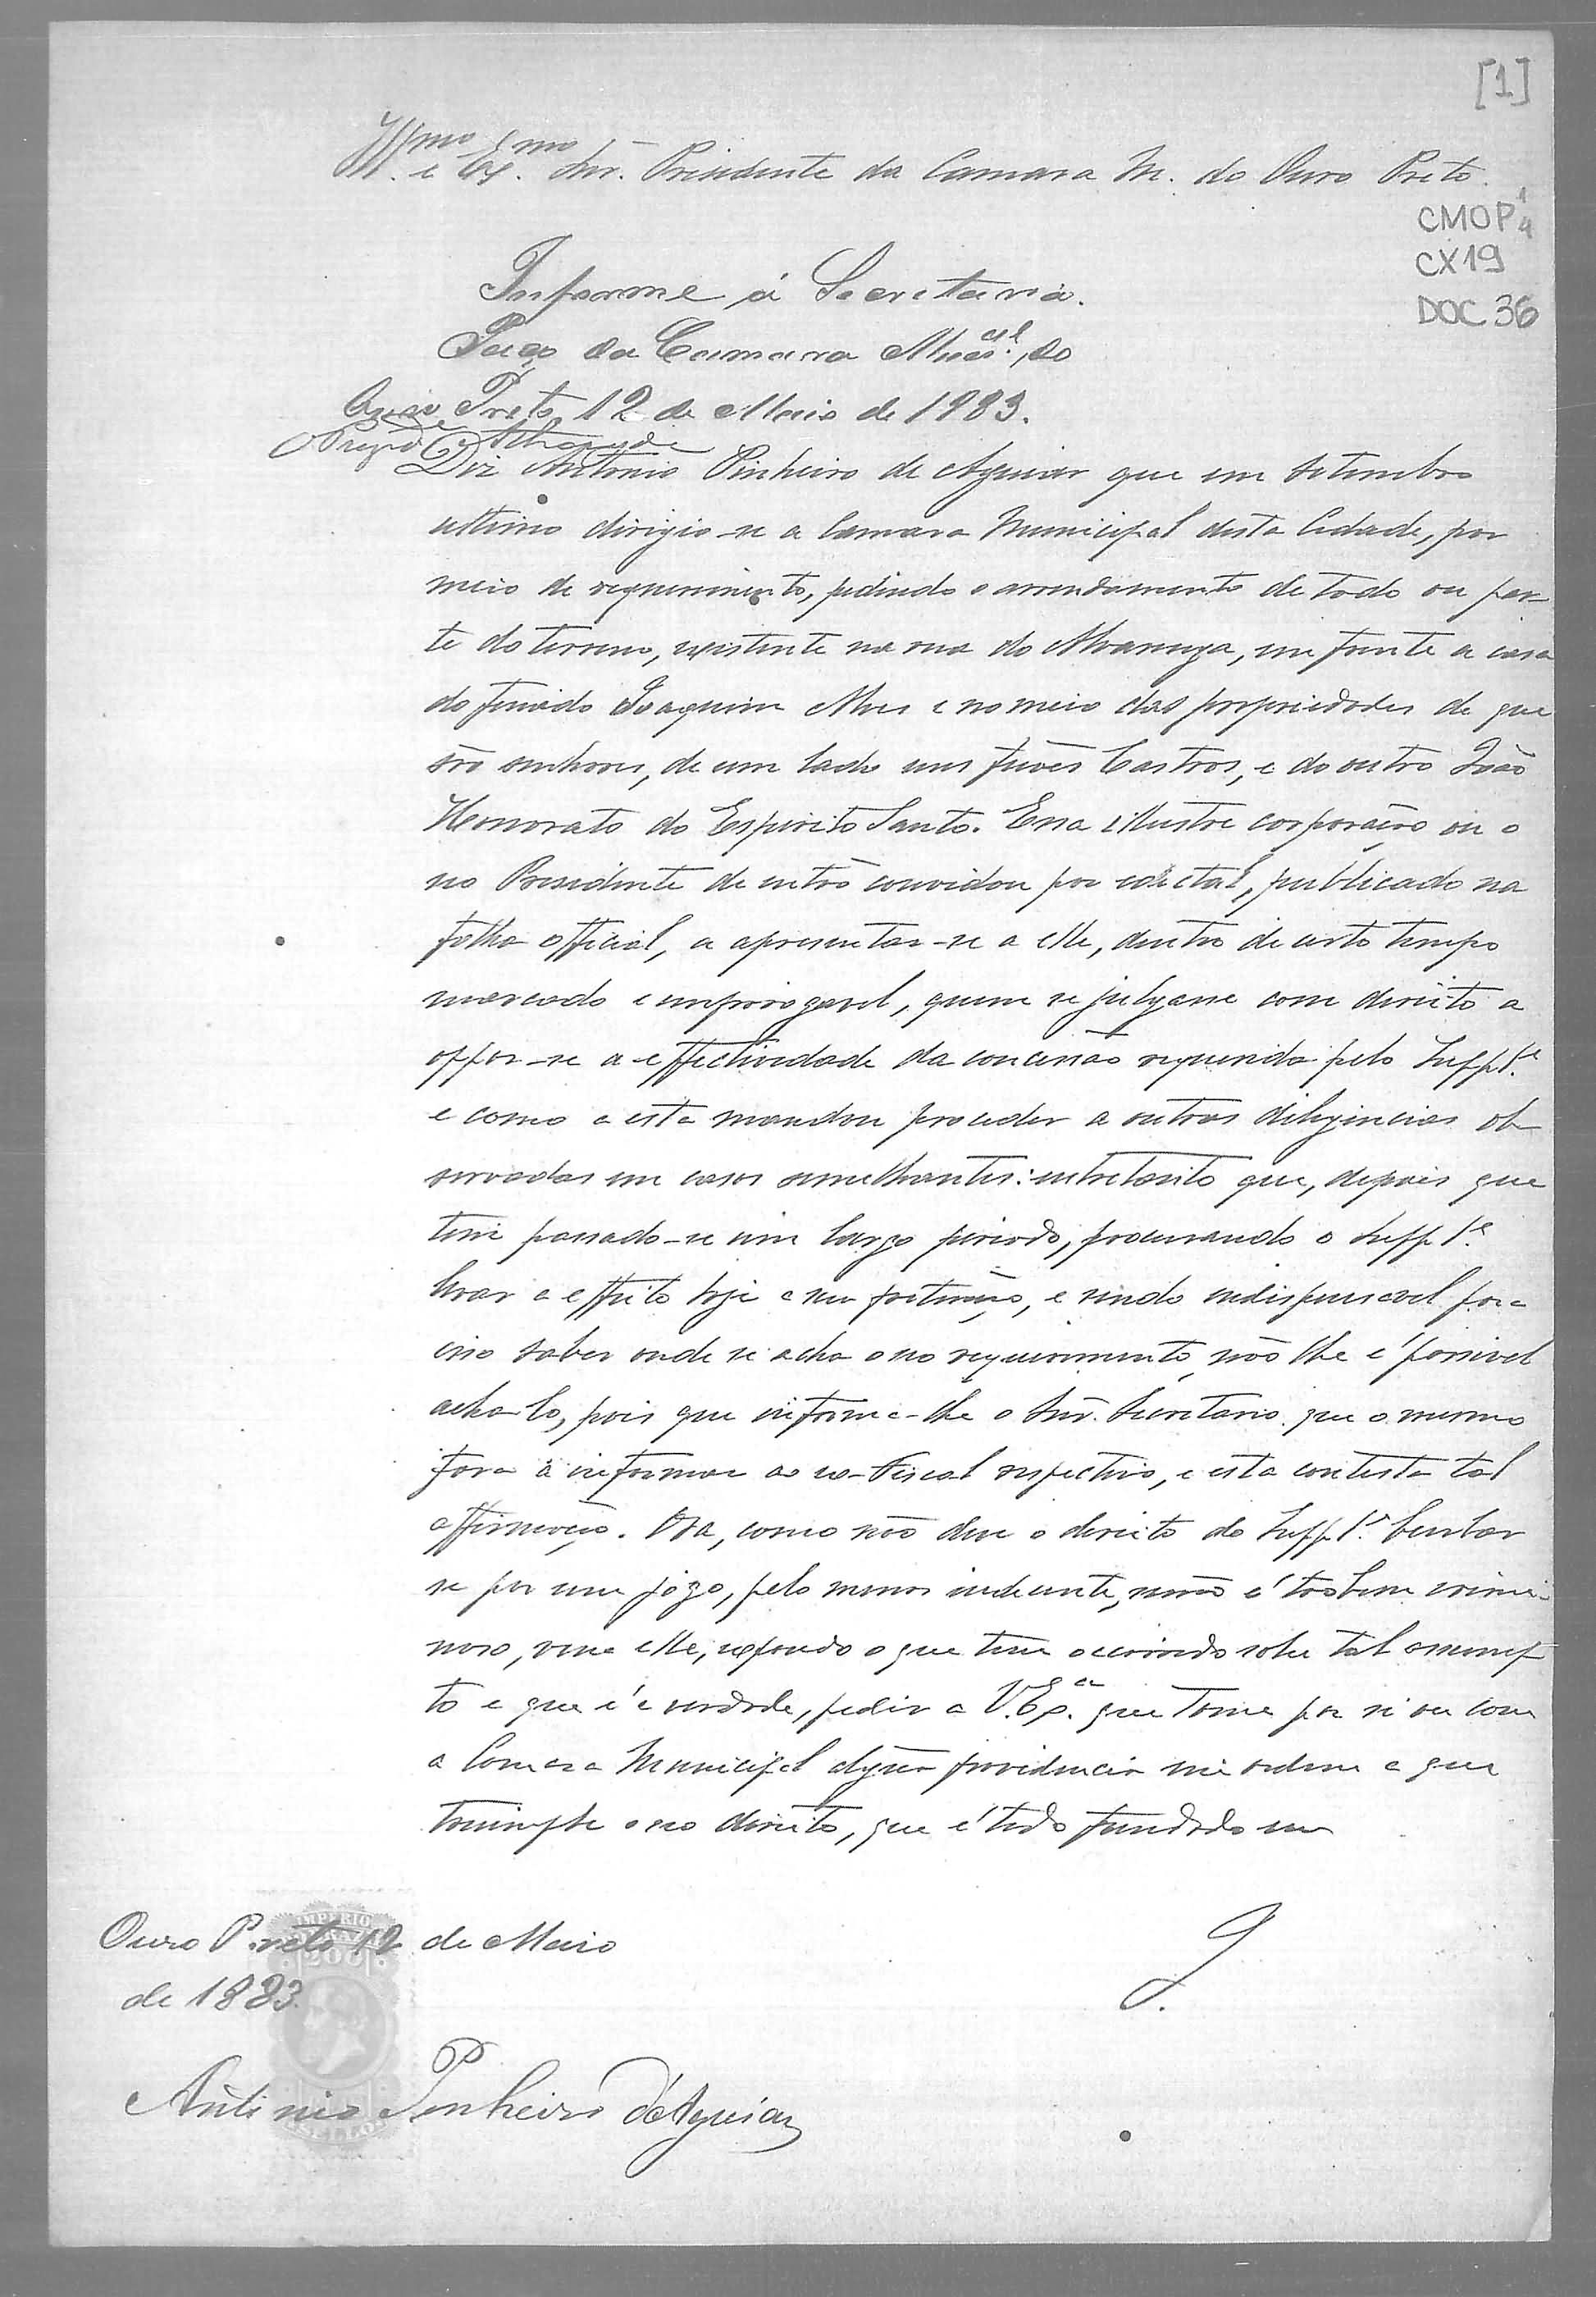 [1]
Illmo e Exmo Snr. Presidente da Camara M. do Ouro Preto.
CMOP 1/4
CX 19
DOC 36
Informe á Secretaria.
Paço da Camara Munical. do
Ouro Preto, 12 de Maio de 1883.
Diz Antonio Pinheiro de Aguiar que em Setembro
ultimo dirigio-se a Camara Municipal desta Cidade, por
meio de requerimento, pedindo o arrendamento de todo ou par-
te do terreno, existente na rua do Alvarenga, em frente a casa
do finado Joaquim Alves e no meio das propriedades de que
são senhores, de um lado uns Castros, e do outro João
Honorato do Espirito Santo. Essa illustre corporação ou o
seo Presidente de então convidou por edictal, publicado na
folha official, a apresentar-se a elle, dentro de certo tempo
marcado e improrogavel, quem se julgasse com direito a
oppor-se a effectividade da concessão requerida pelo Supp.te
e como a esta mandou proceder a outras diligencias ob
servadas em casos semelhantes: entretanto que, depois que
tem passado-se um largo periodo, procurando o Supp.te
levar a effeito hoje a sua pretenção, e sendo indispensavel para
isso saber onde se acha o seo requerimento, não lhe é possivel
achal-o, pois que informa-lhe o Snr. Secretario que o mesmo
fora á informar ao ex-Fiscal respectivo, e este contesta tal
affirmação. Ora, como não deve o direito do Supp.te burlar
se por um jogo, pelo menos indecente, senão é tãobem crimi-
noso, vem elle, expondo o que tem occorrido sobre tal assump
to e que é a verdade, pedir a V. Ex.cia que tome por si ou com
a Camara Municipal alguma providencia em ordem a que
triumphe o seo direito, que é todo fundado em
J.
Ouro Preto 12 de Maio
de 1883.
IMPERIO
200
SELLO
Antonio Pinheiro d'Aguiar